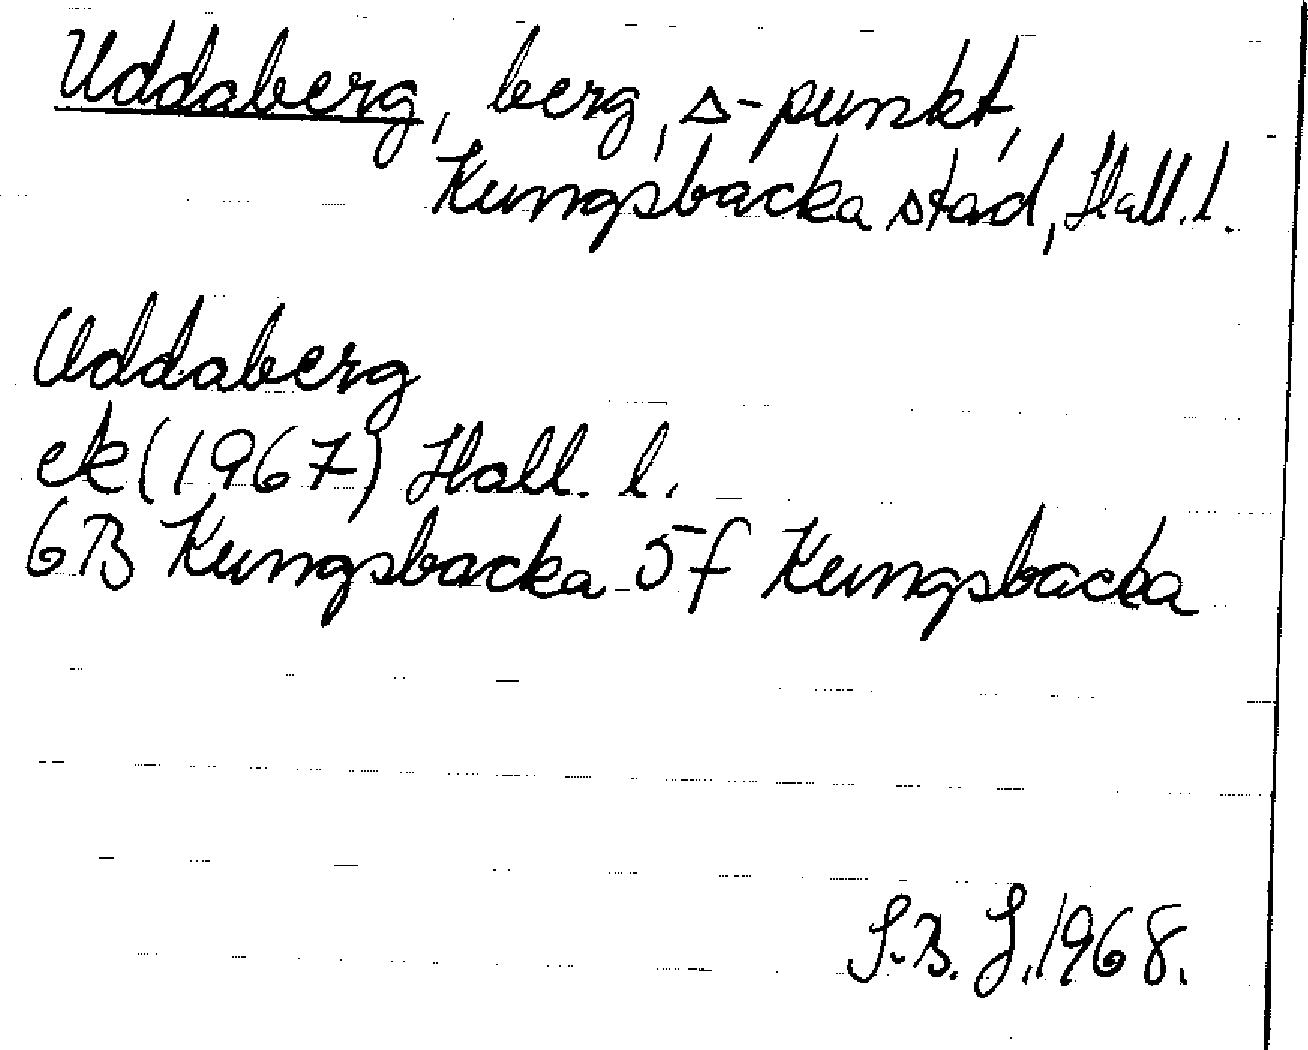 Uddaberg, berg, △-punkt,
Kungsbacka stad, Hall. l.
Uddaberg
ek (1967) Hall. l.
6B Kungsbacka 5f Kungsbacka
S.B. J. 1968.